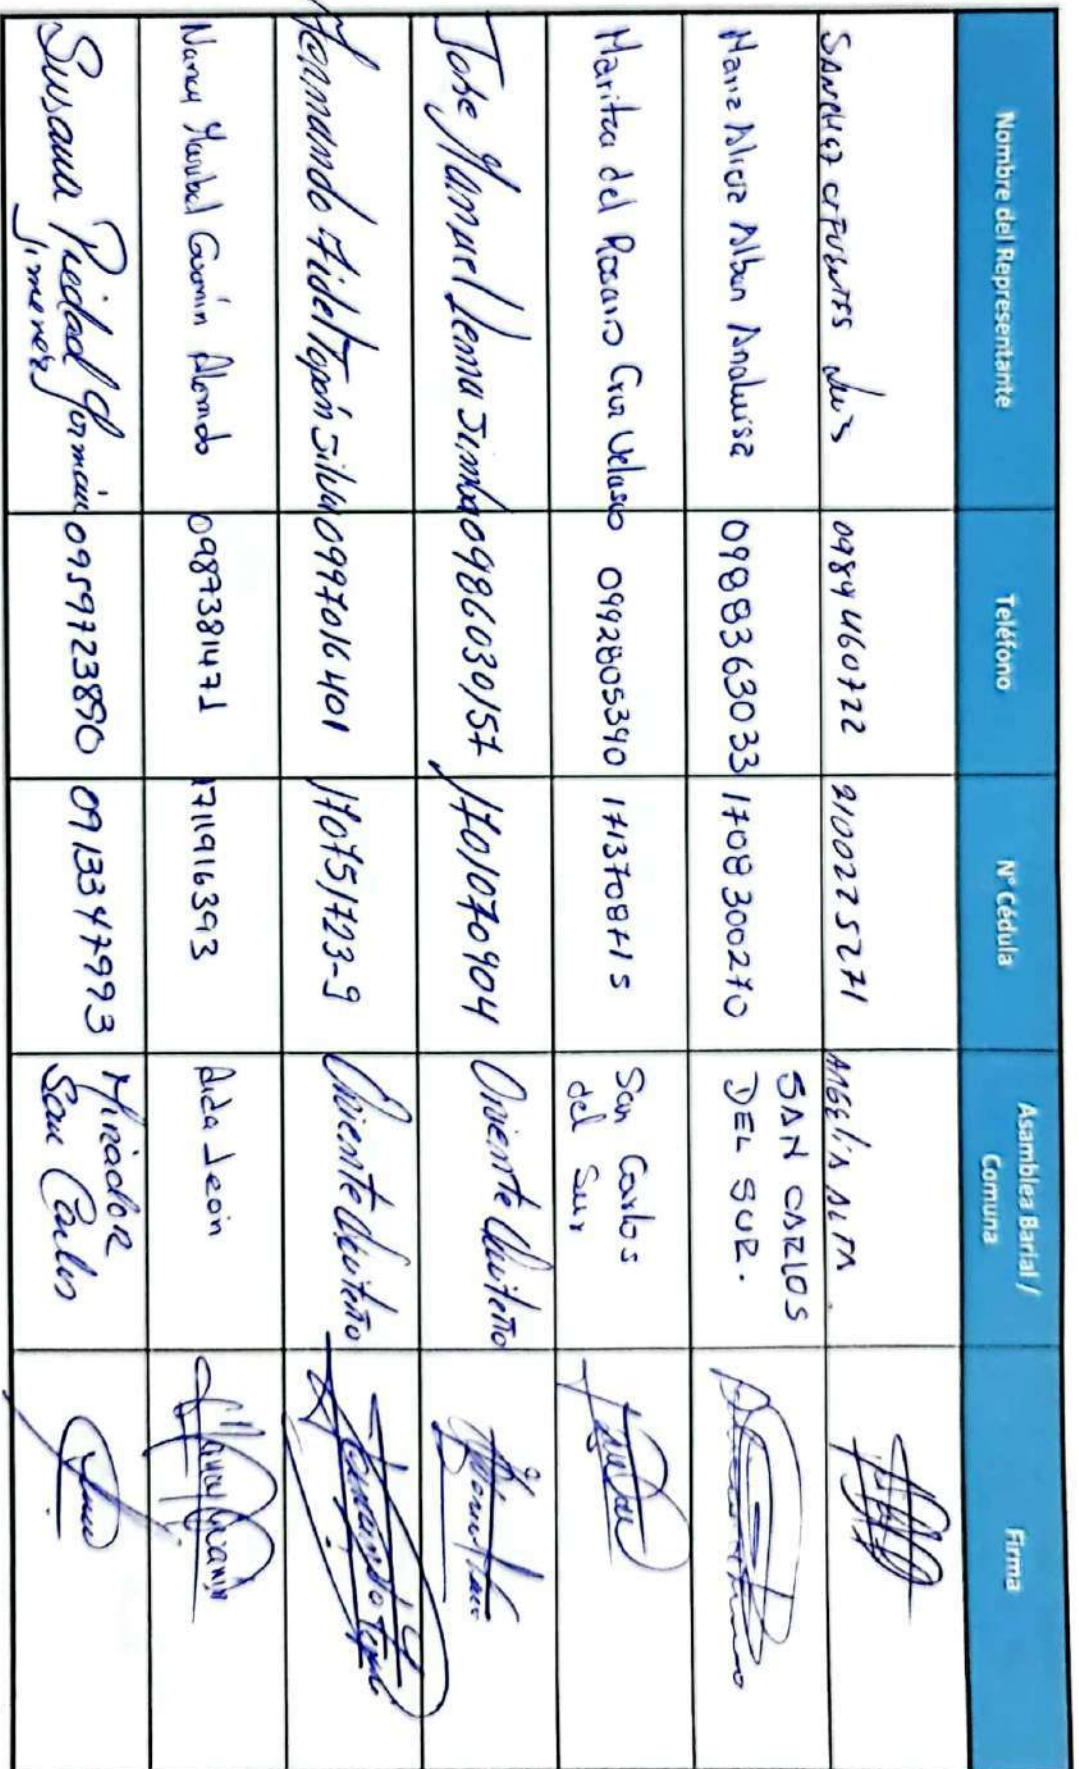 Nombre del Representante Teléfono N° Cédula Asamblea Barial / Comuna Firma
SANCHEZ CIFUENTES Luis 0984460722 2100225271 ANGELIA ALTA
Maria Alicia Alban Analuisa 0988363033 1708300270 SAN CARLOS DEL SUR.
Maritza del Rosario Cruz Velasco 0992805390 1713708715 San Carlos del Sur
Jose Manuel Lema Jimba 0986030157 1701070904 Oriente Quiteño
Hernando Fidel Topón Silva 0997016401 170751723-9 Oriente Quiteño
Nancy Maribel Guamín Alomodo 0987381471 1711916393 Aida Leon
Susana Piedad Jimenez 0959723890 0913347993 Mirador San Carlos